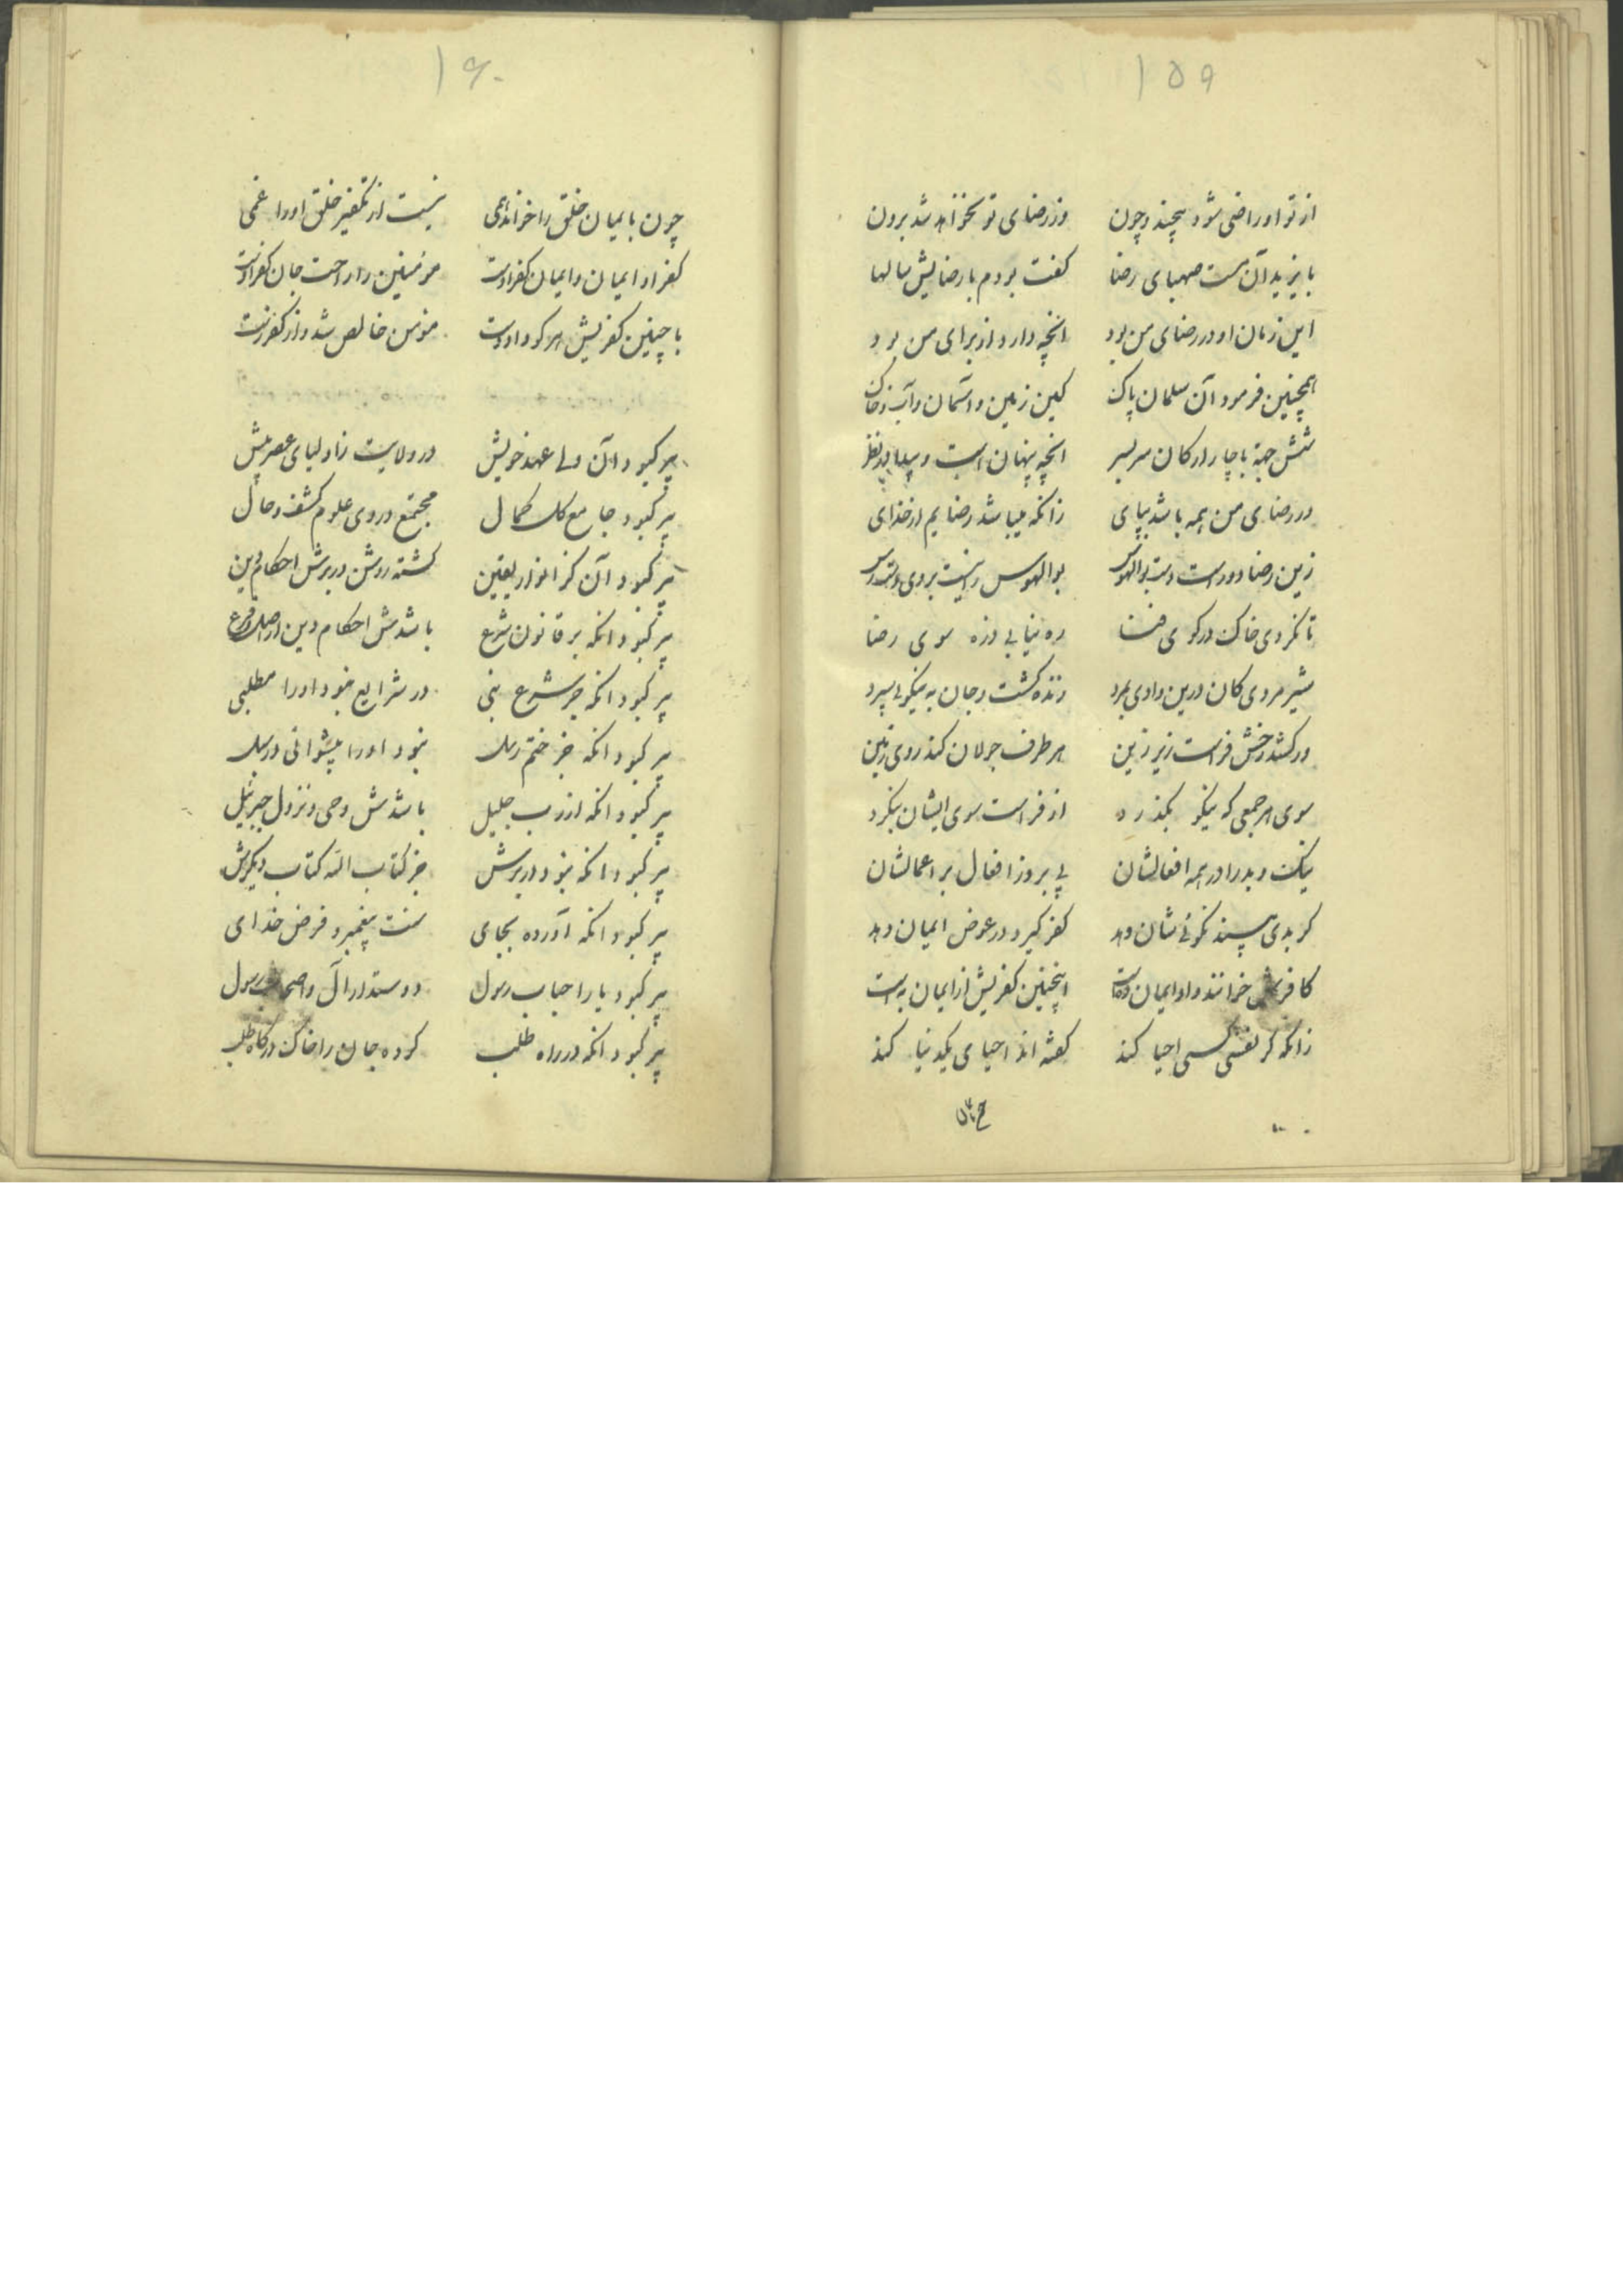 ۱۵۹
از تو او راضی شود بیچند و چون وز رضای تو نخواهد شد برون
بایزید آن مست صهبای رضا گفت بودم با رضایش سالها
این زمان او در رضای من بود انچه دارد از برای من بود
همچنین فرمود آن سلمان پاک کین زمین و آسمان و آب و خاک
شش جهة با چار ارکان سربسر انچه پنهان است و پیدا در نظر
در رضای من همه باشد بپای زانکه میباشد رضایم از خدای
زین رضا دور است دست بوالهوس بوالهوس را نیست بر وی دسترس
تا نکردی خاک در کوی فنا ره نیابی ذره سوی رضا
شیر مردی کان درین وادی بمرد زنده کشت و جان به نیکوئی سپرد
در کشد رخش فراست زیر زین هر طرف جولان کند روی زمین
سوی هر جمعی که نیکو بگذرد از فراست سوی ایشان بنگرد
نیک و بد را در همه افعالشان پی برد از افعال بر اعمالشان
کر بدی بیند نکوئی شان دهد کفر گیرد در عوض ایمان دهد
کافرش خوانند و او ایمان ده است اینچنین کفریش از ایمان به است
زانکه کر نفسی کسی احیا کند کفته اند احیای یک دنیا کند
۱۶۰
چون بایمان خلق را خواند همی نیست از تکفیر خلق او را غمی
کفر او ایمان و ایمان کفر اوست مؤمنین را راحت جان کفر اوست
با چنین کفریش هر کو داد دست مؤمن خالص شد و از کفر رست
پیر کبود آن ولی عهد خویش در ولایت ز اولیای عصر پیش
پیر کبود جامع کل کمال مجتمع در وی علوم کشف و حال
پیر کبود آن کز انوار یقین کشته روشن در برش احکام دین
پیر کبود انکه بر قانون شرع باشدش احکام دین از اصل و فرع
پیر کبود انکه جز شرع نبی در شرایع نبود او را مطلبی
پیر کبود انکه جز ختم رسل نبود او را پیشوائی در سبل
پیر کبود انکه از رب جلیل باشدش وحی و نزول جبرئیل
پیر کبود انکه نبود در برش جز کتاب الله کتاب دیکرش
پیر کبود انکه آورده بجای سنت پیغمبر و فرض خدای
پیر کبود یار احباب رسول دوستدار آل و اصحاب رسول
پیر کبود انکه در راه طلب کرده جان را خاک درکاه طلب